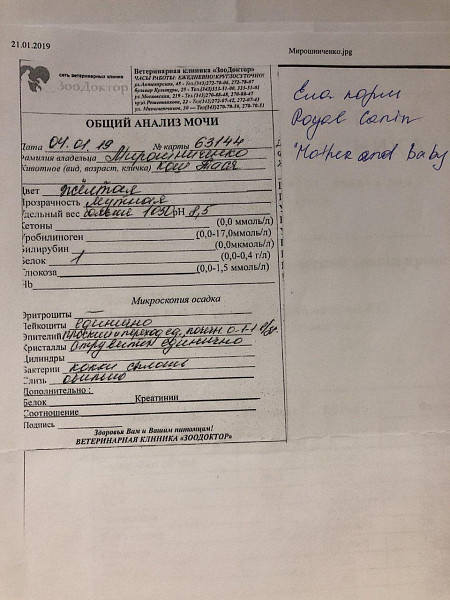 21.01.2019
Мирошниченко.jpg
сеть ветеринарных клиник
ЗооДоктор
Ветеринарная клиника «ЗооДоктор»
ЧАСЫ РАБОТЫ: ЕЖЕДНЕВНО/КРУГЛОСУТОЧНО
ОБЩИЙ АНАЛИЗ МОЧИ
Дата 04.01.19 № карты 63144
Фамилия владельца Мирошниченко
Животное (вид, возраст, кличка) кош Тася
Цвет жёлтая
Прозрачность мутная
Удельный вес больше 1030 рН 8,5
Кетоны (0,0 ммоль/л)
Уробилиноген (0,0-17,0ммоль/л)
Билирубин (0,0мкмоль/л)
Белок 1 (0,0-0,4 г/л)
Глюкоза (0,0-1,5 ммоль/л)
Hb
Микроскопия осадка
Эритроциты —
Лейкоциты единично
Эпителий плоский и переход ед. почечн. 0-1-1
Кристаллы струвиты единично
Цилиндры
Бактерии кокки сплошь
Слизь обильно
Дополнительно :
Белок Креатинин
Соотношение
Подпись
Здоровья Вам и Вашим питомцам!
ВЕТЕРИНАРНАЯ КЛИНИКА «ЗООДОКТОР»
Ела корм
Royal Canin
"Mother and Baby